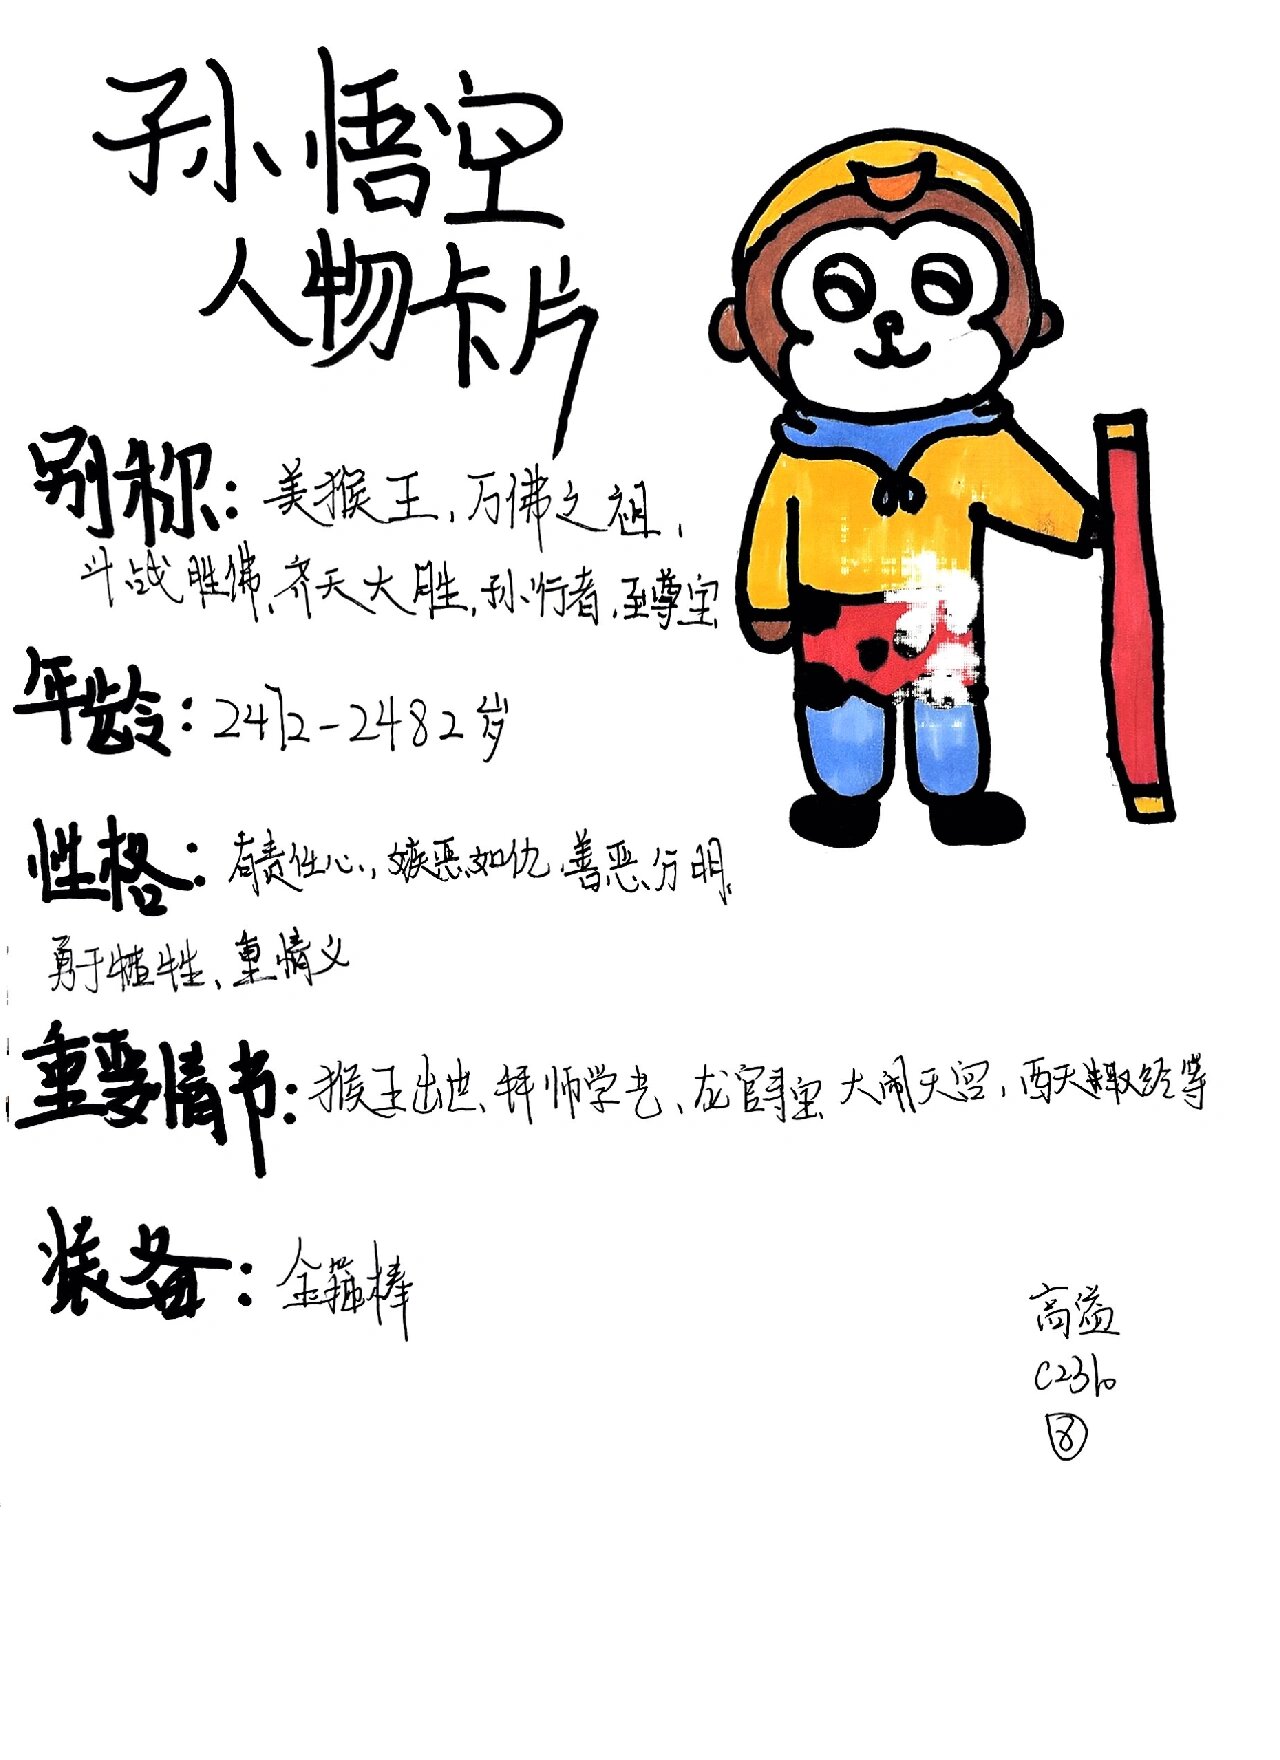 孙悟空
人物卡片
别称：美猴王、万佛之祖、
斗战胜佛、齐天大胜、孙行者、至尊宝
年龄：2472-2482岁
性格：有责任心、嫉恶如仇、善恶分明、
勇于牺牲、重情义
重要情节：猴王出世、拜师学艺、龙宫寻宝 大闹天宫、西天取经等
装备：金箍棒
高溢
C2310
8